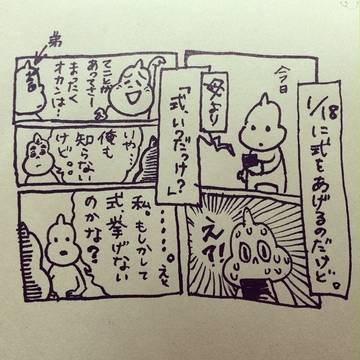 1/18に式をあげるのだけど。
今日
母より
「式、いつだっけ?」
え?!
弟
てことが
あってさー
まったく
オカンは…
いや…
俺も
知らない
けど。。
……。えと
私。もしかして
式挙げない
のかな?